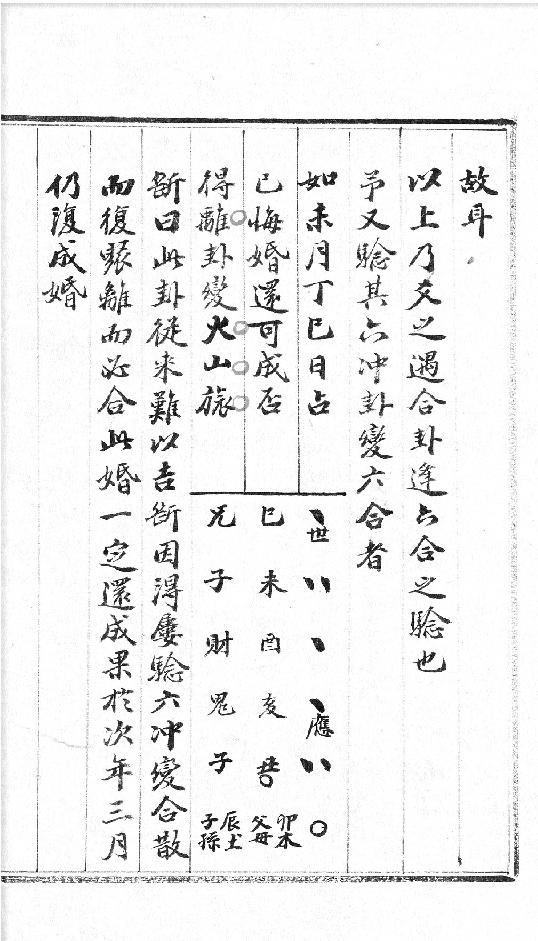 故耳
以上乃爻之遇合卦逢六合之驗也
予又驗其六冲卦變六合者
如未月丁巳日占
已悔婚還可成否
得離卦變火山旅
丶世 丶丶 丶 丶應 丶丶 〇
巳 未 酉 亥 丑 卯木父母
兄 子 財 鬼 子 辰土子孫
斷曰此卦從来難以吉斷因得屡驗六冲變合散
而復聚離而必合此婚一定還成果於次年三月
仍復成婚